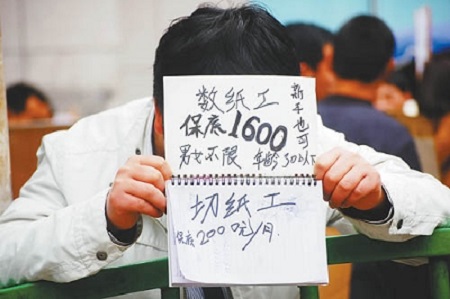 数纸工
保底1600
新手也可
男女不限 年龄30以下
切纸工
保底2000元/月